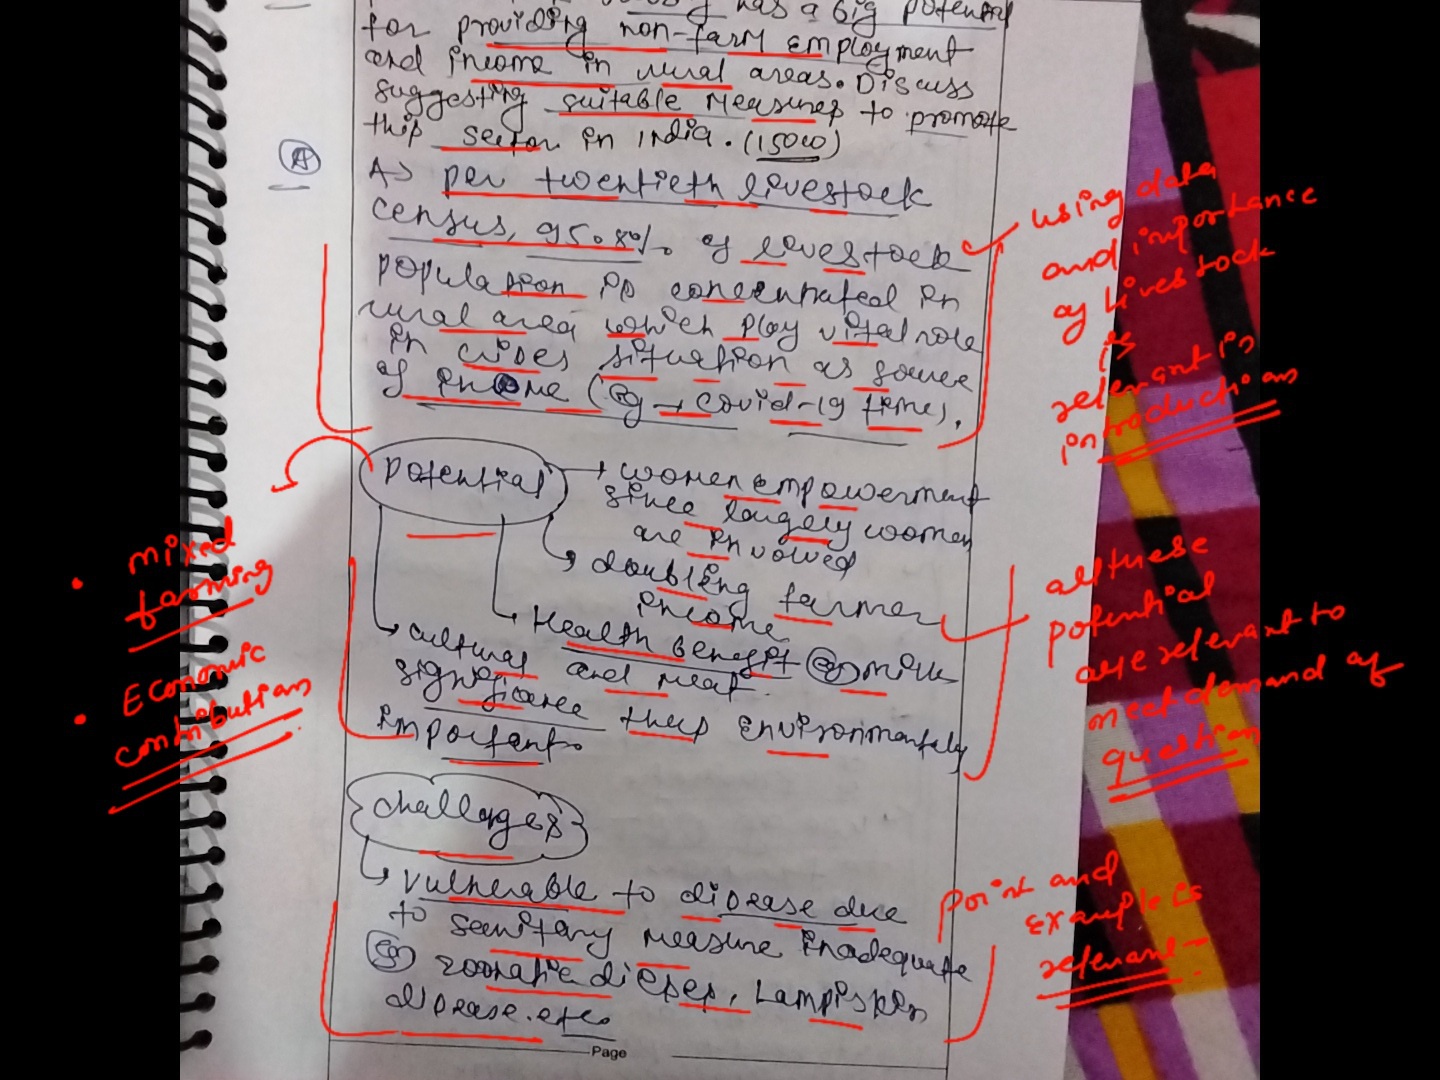 has a big potential
for providing non-farm employment
and income in rural areas. Discuss
suggesting suitable measures to promote
this sector in India. (150w)
A
A→ per twentieth livestock
census, 95.8% of livestock
population is concentrated in
rural area which play vital role
in crises situation as source
of income (eg → covid-19 times).
using data
and importance
of livestock
is
relevant in
introductions
Potential
→ women empowerment
since largely women
are invovled
doubling farmer
income
Health benefit eg milk
and meat
cultural
significance thus environmentaly
important.
• mixed
farming
• Economic
contributions
all these
potential
are relevant to
meet demand of
question
challanges
vulnerable to disease due
to senitary measure inadequate
eg zoonatic dieses, Lampiskin
disease.etc.
Point and
example is
relevant
Page